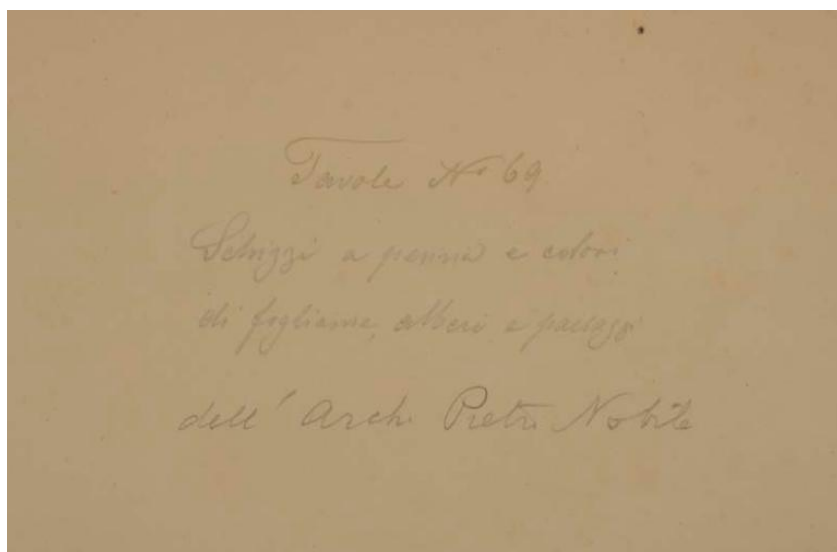 Tavole No 69
Schizzi a penna e colori
di fogliame, alberi e paesaggi
dell' Arch. Pietro Nobile